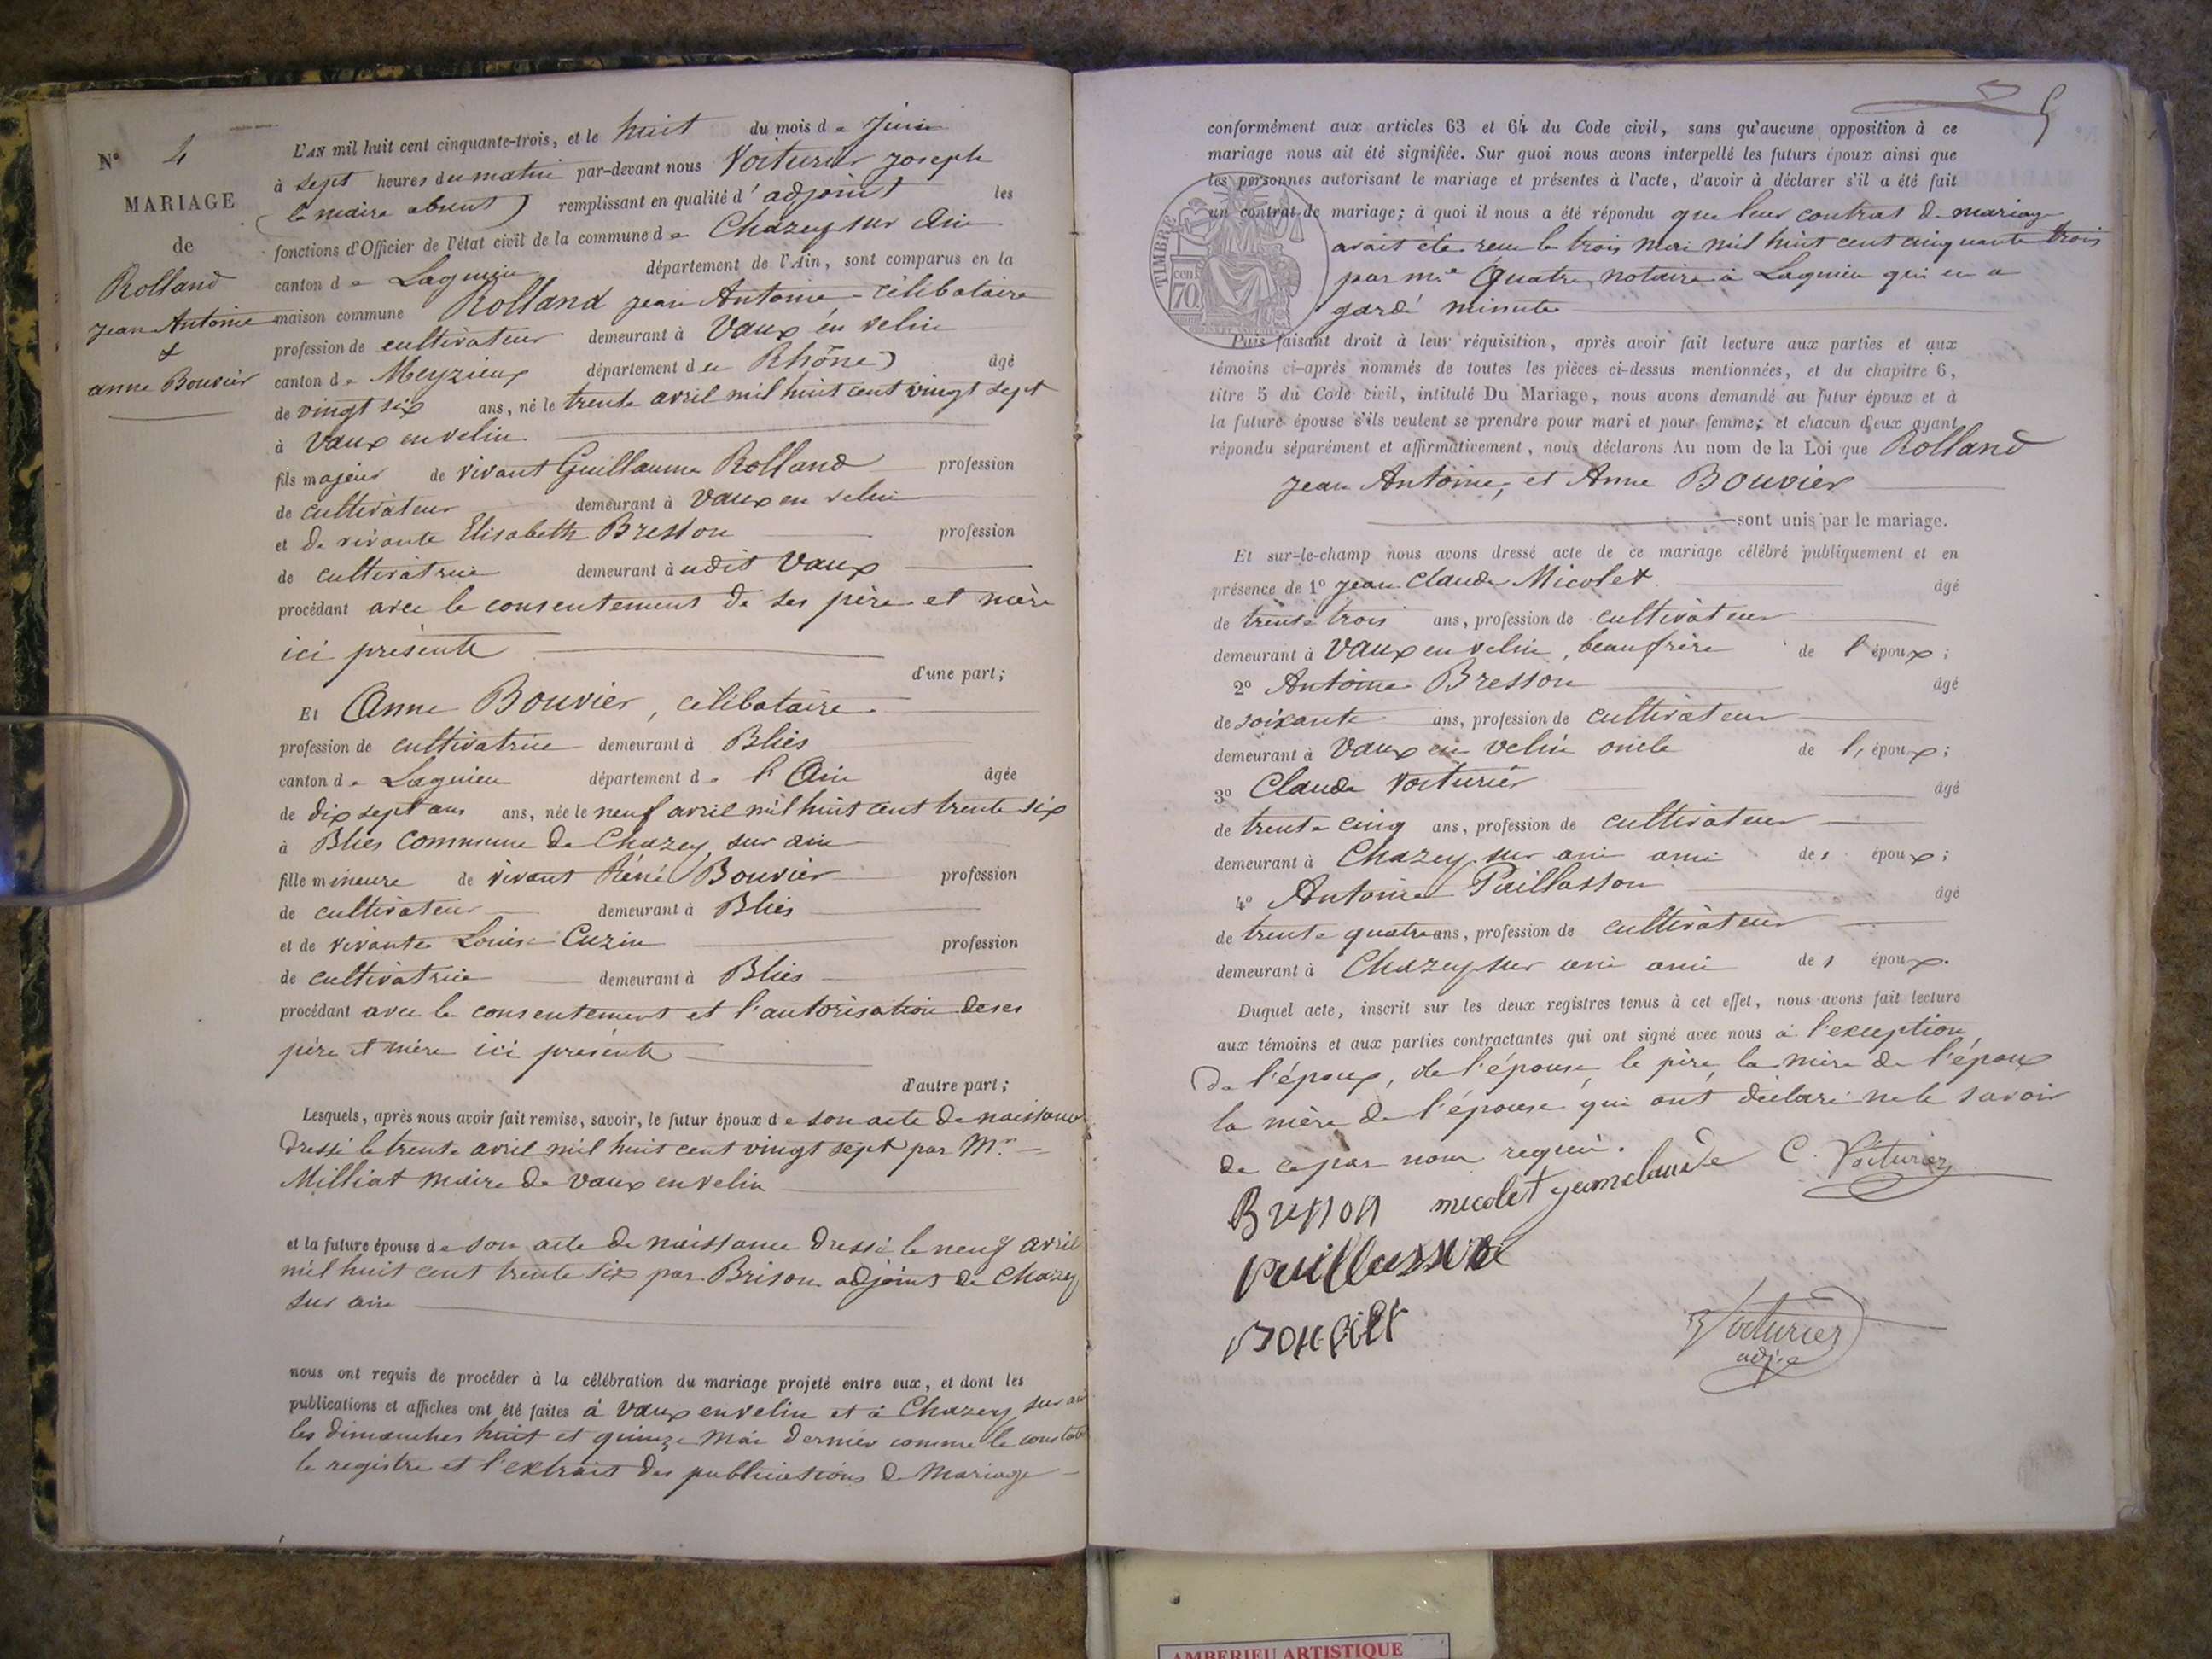 N° 4
MARIAGE
de
Rolland
Jean Antoine
&
anne Bouvier
L'AN mil huit cent cinquante-trois, et le huit du mois de Juin
à sept heures du matin par-devant nous Voiturier Joseph
(le maire absent) remplissant en qualité d'adjoint les
fonctions d'Officier de l'état civil de la commune de Chazey sur Ain
canton de Lagnieu département de l'Ain, sont comparus en la
maison commune Rolland Jean Antoine célibataire
profession de cultivateur demeurant à Vaux en velin
canton de Meyzieux département du Rhône) âgé
de vingt six ans, né le trente avril mil huit cent vingt sept
à Vaux en velin
fils majeur de vivant Guillaume Rolland profession
de cultivateur demeurant à Vaux en velin
et de vivante Elisabeth Bresson profession
de cultivatrice demeurant à udit Vaux
procédant avec le consentement de ses père et mère
ici présents
d'une part;
Et Anne Bouvier, célibataire
profession de cultivatrice demeurant à Blies
canton de Lagnieu département de l'Ain âgée
de dix sept ans ans, née le neuf avril mil huit cent trente six
à Blies commune de Chazey sur ain
fille mineure de vivant Réné Bouvier profession
de cultivateur demeurant à Blies
et de vivante Louise Cuzin profession
de cultivatrice demeurant à Blies
procédant avec le consentement et l'autorisation de ses
père et mère ici présents
d'autre part;
Lesquels, après nous avoir fait remise, savoir, le futur époux de son acte de naissance
dressé le trente avril mil huit cent vingt sept par Mr.
Milliat maire de Vaux en velin
et la future épouse de son acte de naissance dressé le neuf avril
mil huit cent trente six par Brison adjoint de Chazey
sur ain
nous ont requis de procéder à la célébration du mariage projeté entre eux, et dont les
publications et affiches ont été faites à Vaux en velin et à Chazey sur ain
les dimanches huit et quinze Mai dernier comme le constate
le registre et l'extrait des publications de Mariage
5
conformément aux articles 63 et 64 du Code civil, sans qu'aucune opposition à ce
mariage nous ait été signifiée. Sur quoi nous avons interpellé les futurs époux ainsi que
les personnes autorisant le mariage et présentes à l'acte, d'avoir à déclarer s'il a été fait
un contrat de mariage; à quoi il nous a été répondu que leur contrat de mariage
avait été reçu le trois Mai mil huit cent cinquante trois
par me Quatre notaire à Lagnieu qui en a
gardé minute
TIMBRE
70 cent
Puis faisant droit à leur réquisition, après avoir fait lecture aux parties et aux
témoins ci-après nommés de toutes les pièces ci-dessus mentionnées, et du chapitre 6,
titre 5 du Code civil, intitulé Du Mariage, nous avons demandé au futur époux et à
la future épouse s'ils veulent se prendre pour mari et pour femme; et chacun d'eux ayant
répondu séparément et affirmativement, nous déclarons Au nom de la Loi que Rolland
Jean Antoine, et Anne Bouvier
sont unis par le mariage.
Et sur-le-champ nous avons dressé acte de ce mariage célébré publiquement et en
présence de 1° Jean Claude Micolet âgé
de trente trois ans, profession de cultivateur
demeurant à Vaux en velin, beaufrère de l'époux;
2° Antoine Bresson âgé
de soixante ans, profession de cultivateur
demeurant à Vaux en velin oncle de l'époux;
3° Claude Voiturier âgé
de trente cinq ans, profession de cultivateur
demeurant à Chazey sur ain ami des époux;
4° Antoine Paillasson âgé
de trente quatre ans, profession de cultivateur
demeurant à Chazey sur ain ami des époux.
Duquel acte, inscrit sur les deux registres tenus à cet effet, nous avons fait lecture
aux témoins et aux parties contractantes qui ont signé avec nous à l'exception
de l'époux, de l'épouse, le père, la mère de l'époux
la mère de l'épouse qui ont déclaré ne le savoir
de ce par nous requis.
Bresson micolet jeanclaude C. Voiturier
Paillasson
Bouvier
Voiturier
adj
AMBERIEU ARTISTIQUE